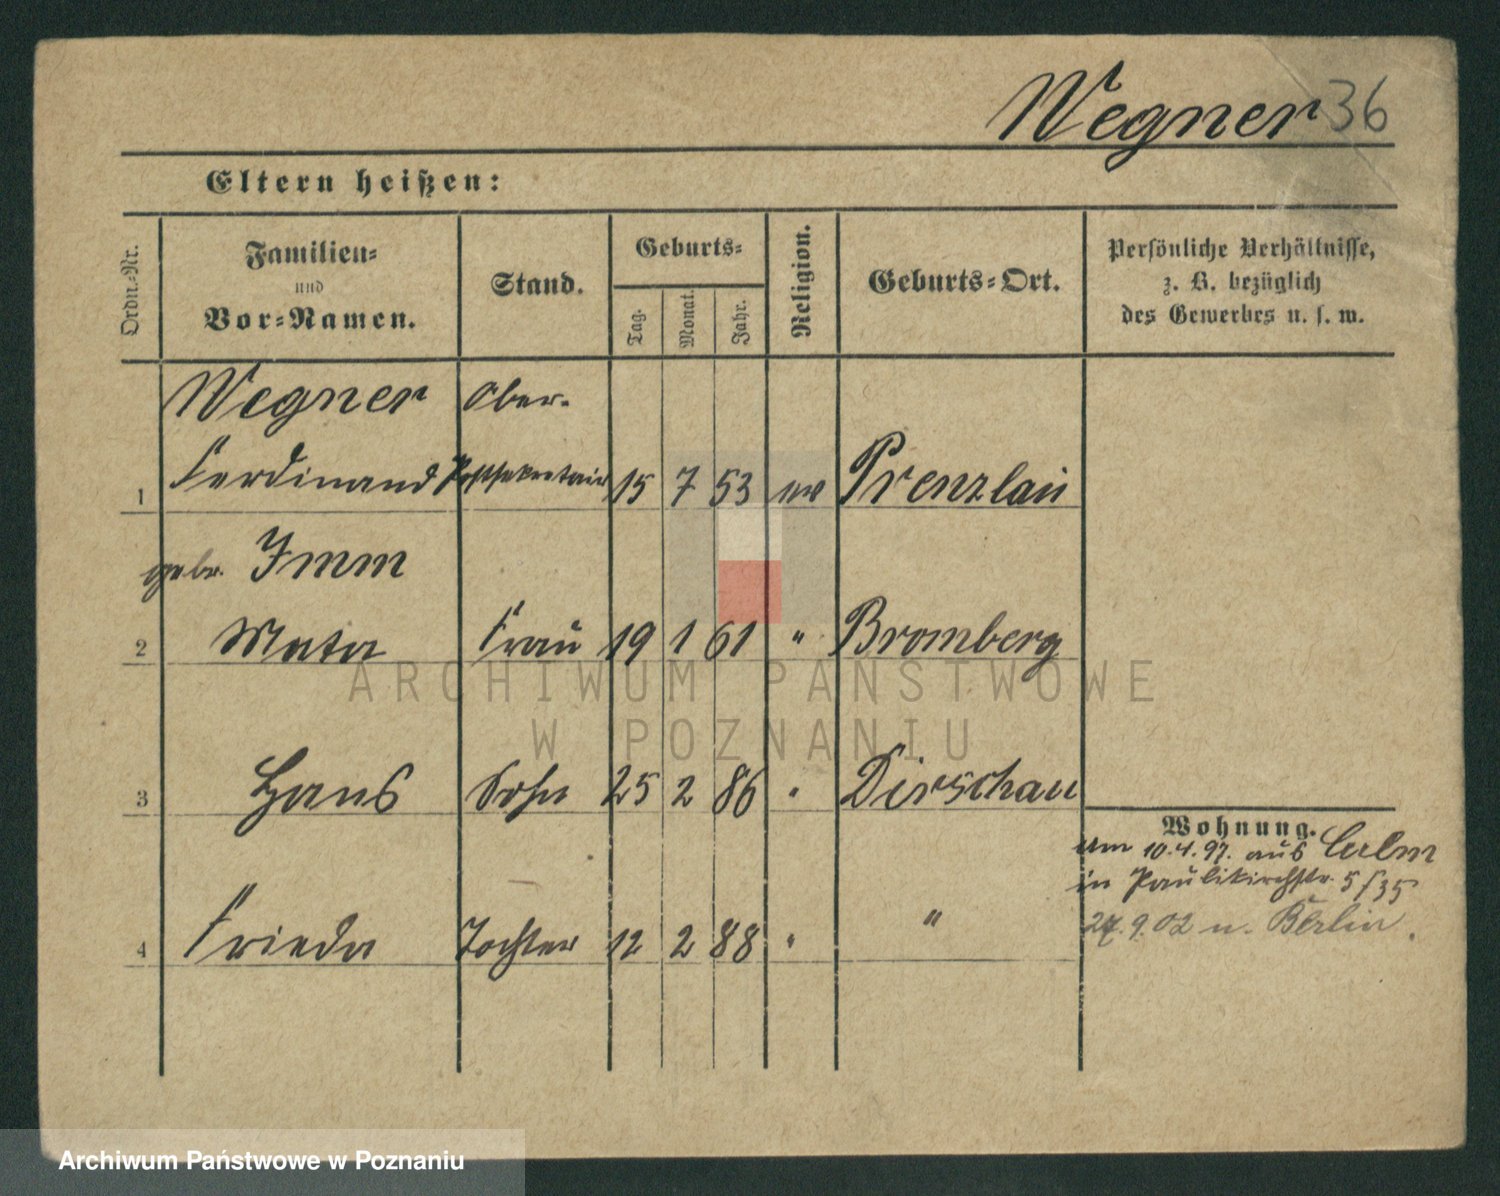 Wegner 36
Eltern heißen:
Ordn.-Nr.
Familien-
und
Vor-Namen.
Stand.
Geburts-
Tag.
Monat.
Jahr.
Religion.
Geburts-Ort.
Persönliche Verhältnisse,
z. B. bezüglich
des Gewerbes u. s. w.
Wegner Ober-
1 Ferdinand Postsekretair 15 7 53 ev Prenzlau
gebr. Imm
2 Meta Frau 19 1 61 " Bromberg
ARCHIWUM PAŃSTWOWE
W POZNANIU
3 Hans Sohn 25 2 86 " Dirschau
Wohnung.
Am 10.4.97. aus Culm
in Paulikirchstr. 5/35
4 Frieda Tochter 12 2 88 " "
24.9.02 n. Berlin.
Archiwum Państwowe w Poznaniu